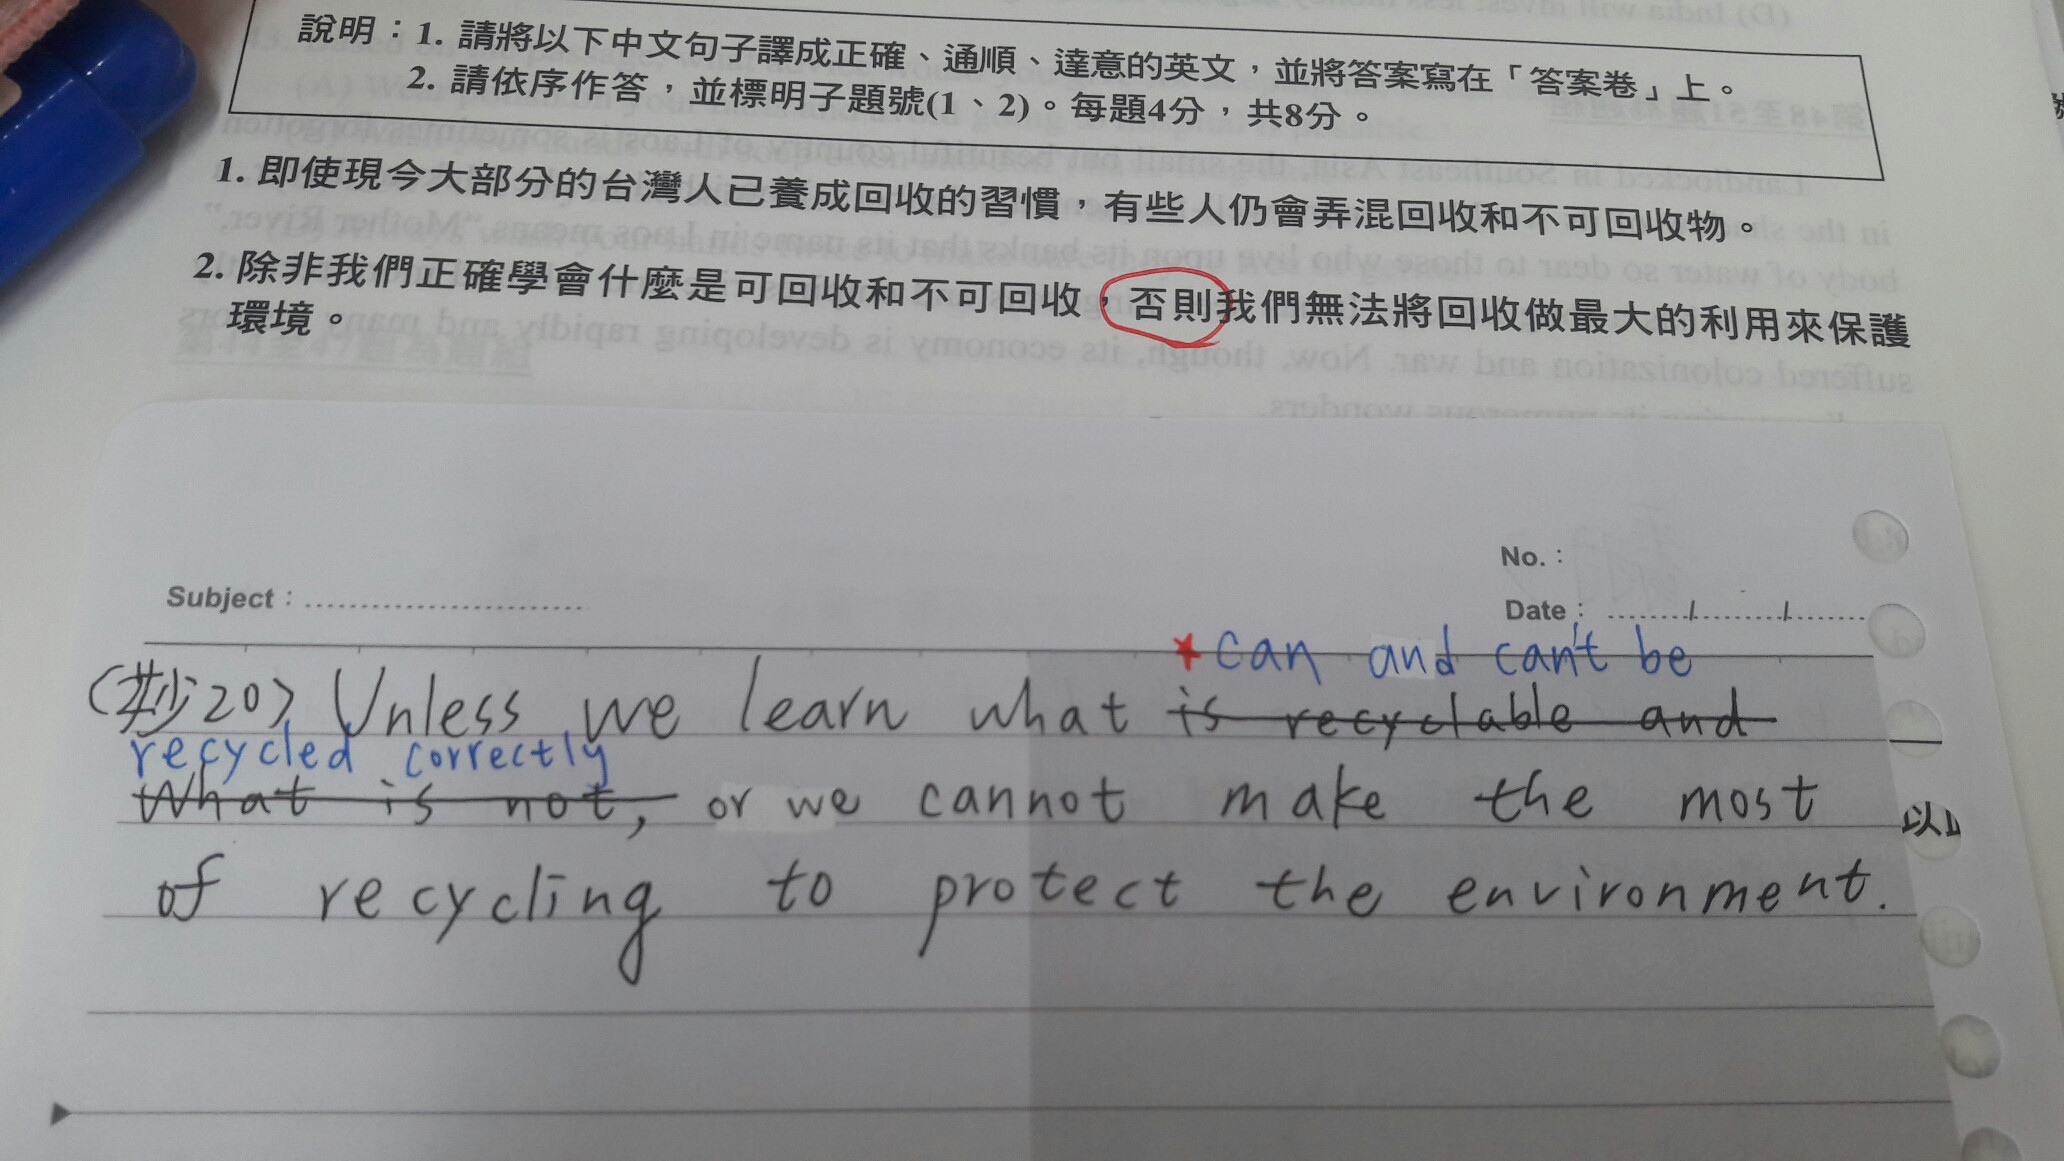 說明：1. 請將以下中文句子譯成正確、通順、達意的英文，並將答案寫在「答案卷」上。
2. 請依序作答，並標明子題號(1、2)。每題4分，共8分。
1. 即使現今大部分的台灣人已養成回收的習慣，有些人仍會弄混回收和不可回收物。
2. 除非我們正確學會什麼是可回收和不可回收，否則我們無法將回收做最大的利用來保護
環境。
No.：
Subject：
Date： / /
★can and can't be
Unless we learn what is recyclable and
recycled correctly
What is not, or we cannot make the most
以
of recycling to protect the environment.